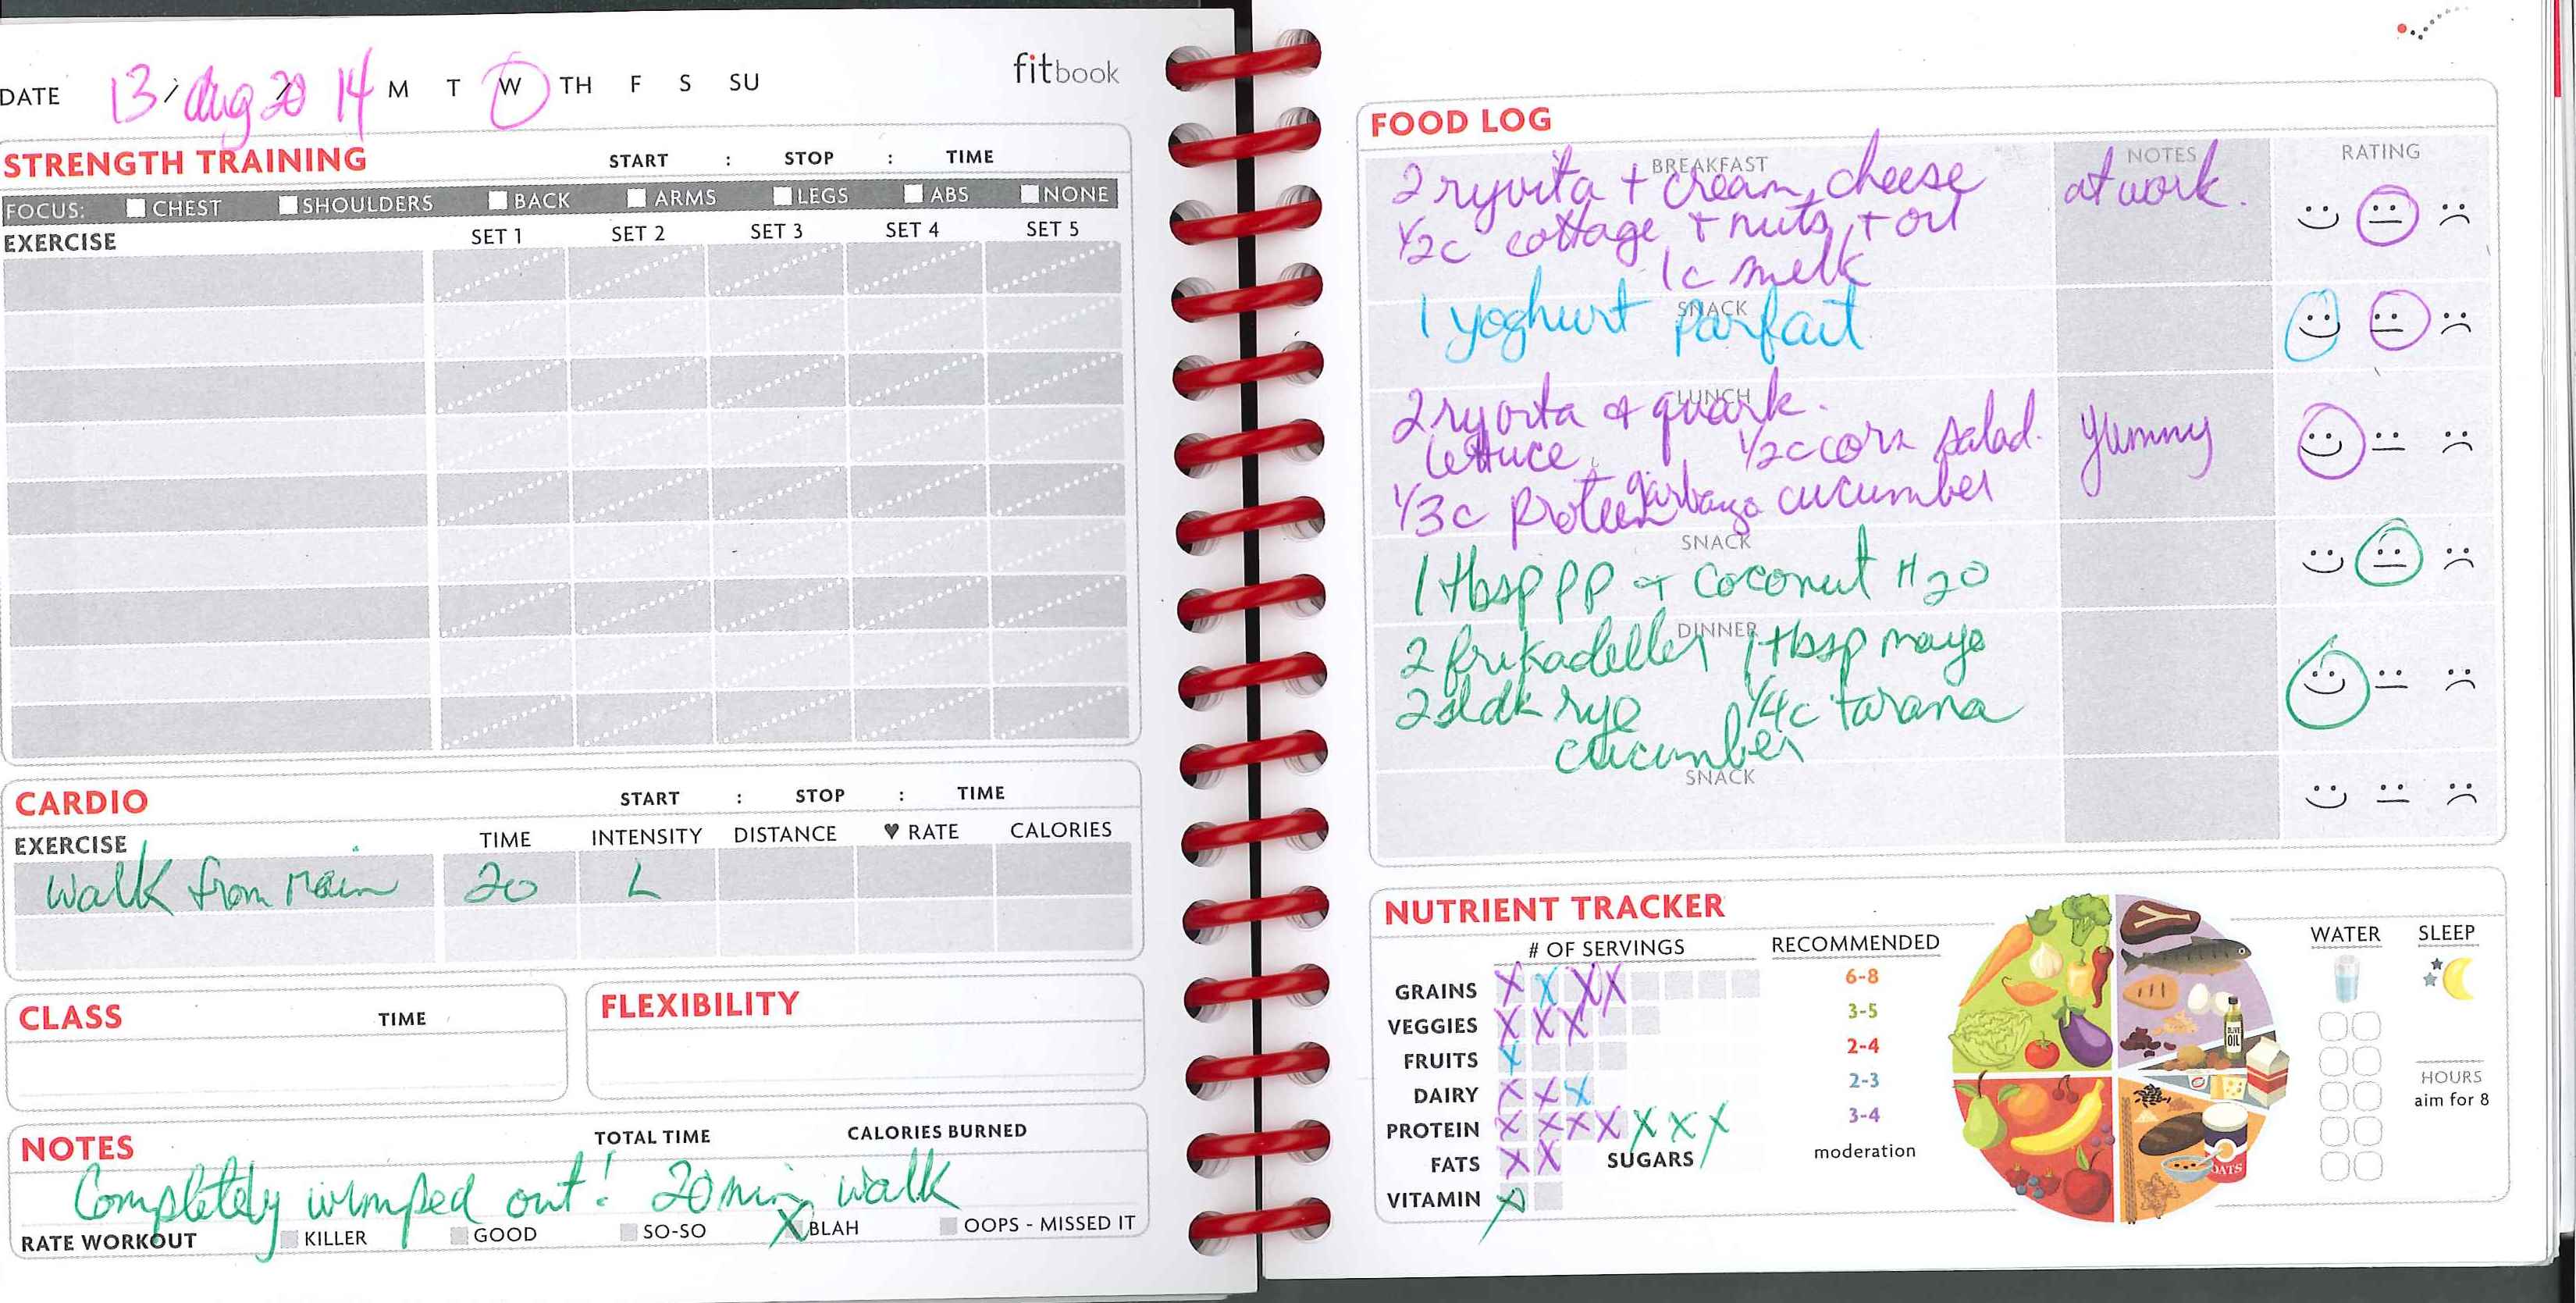 DATE 13 / Aug / 20 14 M T W TH F S SU
fitbook
STRENGTH TRAINING START : STOP : TIME
FOCUS: CHEST SHOULDERS BACK ARMS LEGS ABS NONE
EXERCISE SET 1 SET 2 SET 3 SET 4 SET 5
CARDIO START : STOP : TIME
EXERCISE TIME INTENSITY DISTANCE ♥ RATE CALORIES
Walk from Main 20 L
CLASS TIME
FLEXIBILITY
NOTES TOTAL TIME CALORIES BURNED
Completely wimped out! 20 min walk
RATE WORKOUT KILLER GOOD SO-SO X BLAH OOPS - MISSED IT
FOOD LOG
BREAKFAST NOTES RATING
2 ryvita + cream cheese at work.
1/2c cottage + nuts + oil
1c melk
SNACK
1 yoghurt parfait
LUNCH
2 ryvita + quark.
lettuce 1/2c corn salad. Yummy
1/3c protein garbanzo cucumber
SNACK
1 tbsp PP + coconut H2O
DINNER
2 frikadeller 1 tbsp mayo
2 rye 1/4c tarama
cucumber
SNACK
NUTRIENT TRACKER
# OF SERVINGS RECOMMENDED WATER SLEEP
GRAINS X X X X 6-8
VEGGIES X X X 3-5
FRUITS X 2-4
DAIRY X X X 2-3
PROTEIN X X X X X X X 3-4
FATS X X SUGARS moderation
VITAMIN X
HOURS
aim for 8
OLIVE OIL
OATS